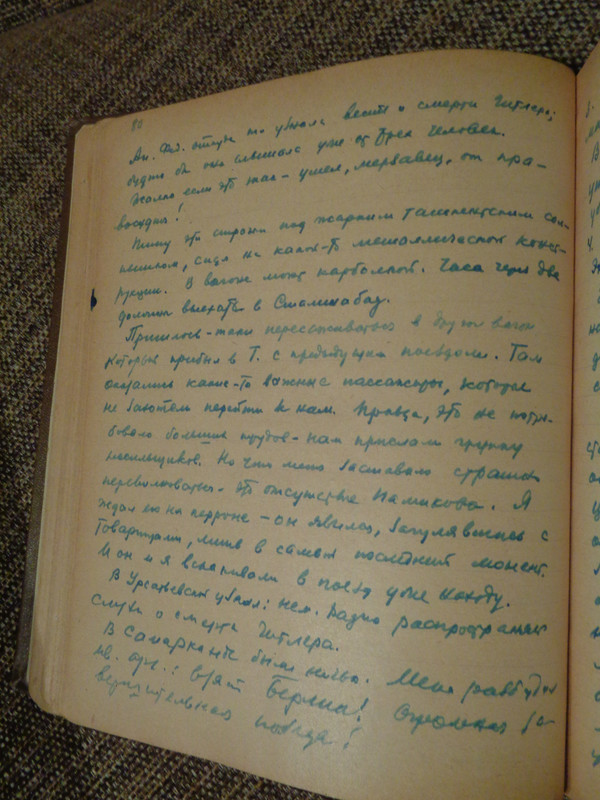 80
Ан. Фед. откуда-то узнала весть о смерти Гитлера;
будто бы она слышала уже от трех человек.
Жалко если это так - ушел, мерзавец, от пра-
восудия!
Пишу эти строки под жарким ташкентским сол-
нышком, сидя на какой-то металлической конст-
рукции. В вагоне моют карболкой. Часа через два
должны выехать в Сталинабад.
Пришлось-таки пересаживаться в другой вагон
который прибыл в Т. с предыдущим поездом. Там
оказались какие-то важные пассажиры, которые
не захотели перейти к нам. Правда, это не потре-
бовало больших трудов - нам прислали группу
носильщиков. Но что меня заставило страшно
переволноваться - это отсутствие Намикова. Я
ждал его на перроне - он явился, загулявшись с
товарищами, лишь в самый последний момент.
И он и я вскакивали в поезд уже на ходу.
В Урсатьевской узнал: нем. радио распространяет
слухи о смерти Гитлера.
В Самарканде были ночью. Меня разбудил
взят Берлин! Огромная за-
победа!